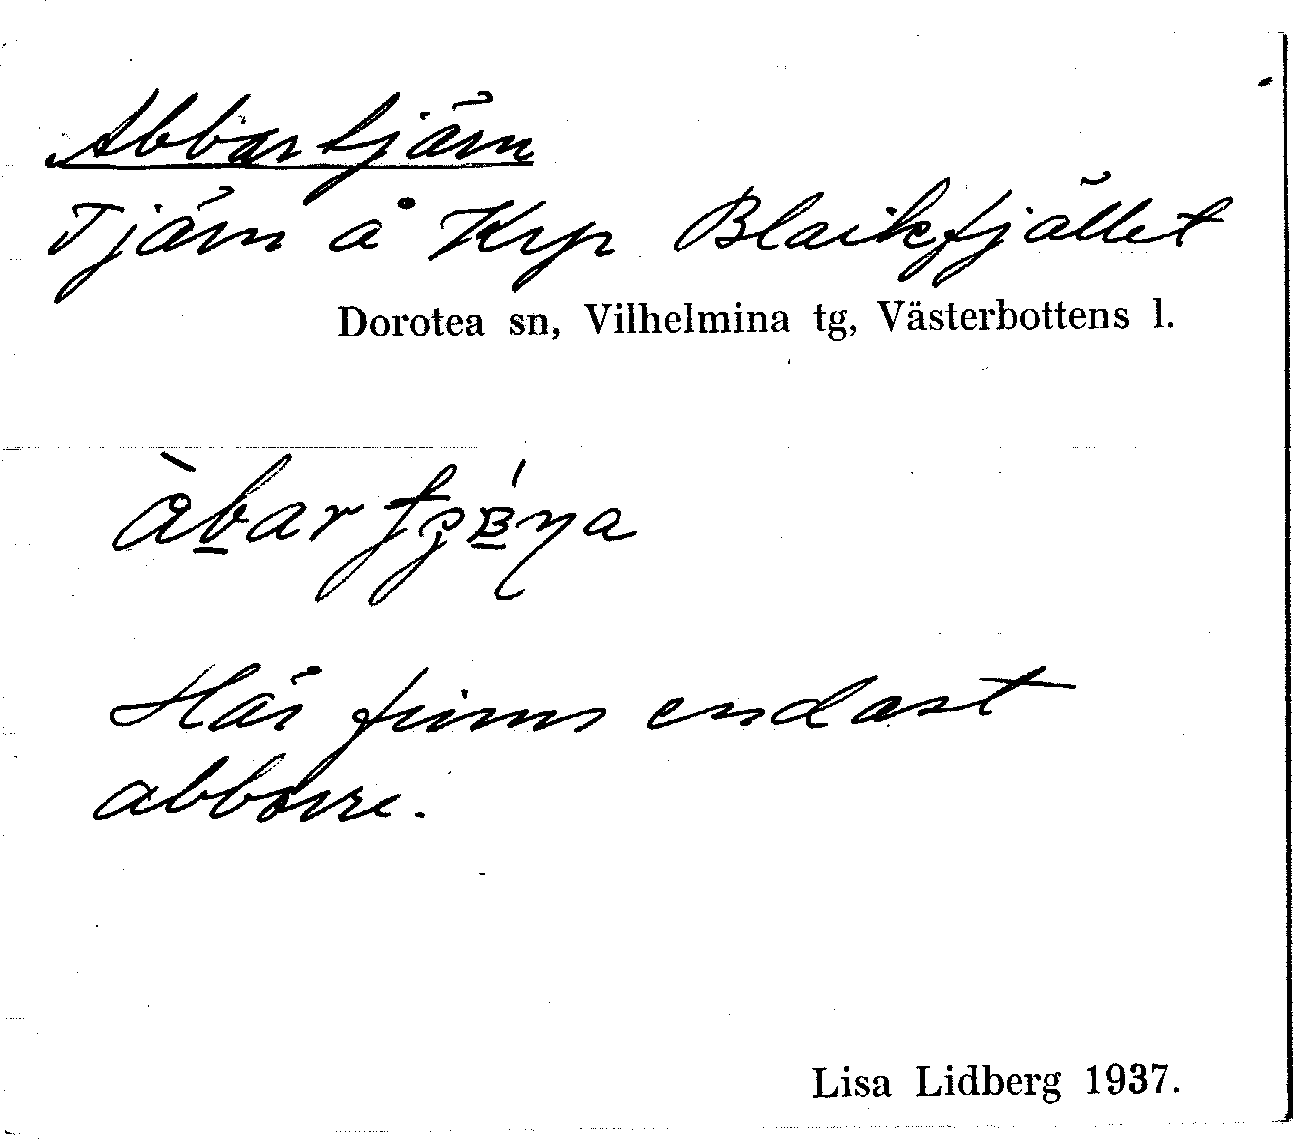 Abbartjärn
Tjärn å Krp Blaikfjället
Dorotea sn, Vilhelmina tg, Västerbottens l.
Här finns endast
abborre.
Lisa Lidberg 1937.